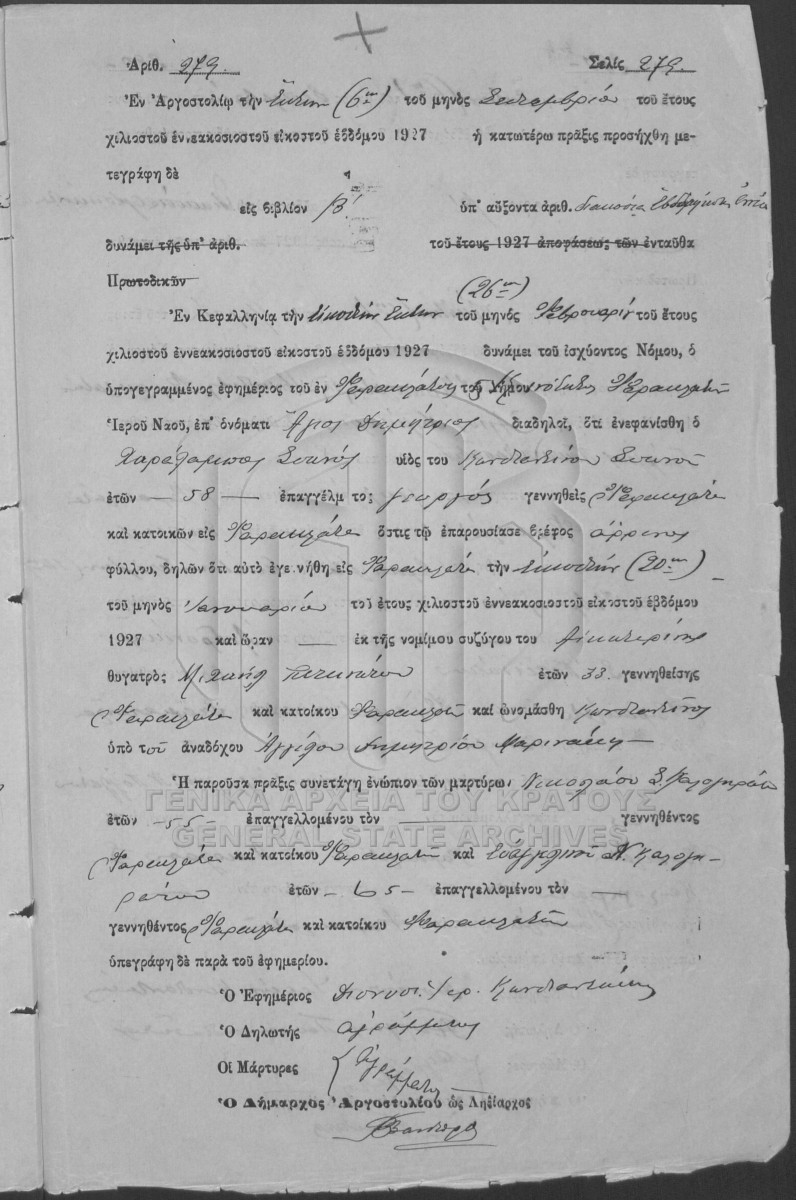 Ἀριθ. 279. Σελὶς 279.
Ἐν Ἀργοστολίῳ τὴν ἕκτην (6ην) τοῦ μηνὸς Σεπτεμβρίου τοῦ ἔτους
χιλιοστοῦ ἐννεακοσιοστοῦ εἰκοστοῦ ἑβδόμου 1927 ἡ κατωτέρω πρᾶξις προσήχθη με-
τεγράφη δὲ
εἰς βιβλίον Β' ὑπ' αὔξοντα ἀριθ. διακόσια ἑβδομήκοντα ἐννέα
δυνάμει τῆς ὑπ' ἀριθ. τοῦ ἔτους 1927 ἀποφάσεως τῶν ἐνταῦθα
Πρωτοδικῶν
(26ην)
Ἐν Κεφαλληνίᾳ τὴν εἰκοστὴν ἕκτην τοῦ μηνὸς Φεβρουαρίου τοῦ ἔτους
χιλιοστοῦ ἐννεακοσιοστοῦ εἰκοστοῦ ἑβδόμου 1927 δυνάμει τοῦ ἰσχύοντος Νόμου, ὁ
ὑπογεγραμμένος ἐφημέριος τοῦ ἐν Φαρακλάτοις τοῦ Δήμου Φαρακλάτων
Ἱεροῦ Ναοῦ, ἐπ' ὀνόματι Ἅγιος Δημήτριος διαδηλοῖ, ὅτι ἐνεφανίσθη ὁ
Χαράλαμπος υἱὸς του Κωνσταντίνου
ἐτῶν — 58 — ἐπαγγέλματος γεωργός γεννηθεὶς Φαρακλάτα
καὶ κατοικῶν εἰς Φαρακλάτα ὅστις τῷ ἐπαρουσίασε βρέφος ἄρρενος
φύλλου, δηλῶν ὅτι αὐτὸ ἐγεννήθη εἰς Φαρακλάτα τὴν εἰκοστήν (20ην)
τοῦ μηνὸς Ἰανουαρίου τοῦ ἔτους χιλιοστοῦ ἐννεακοσιοστοῦ εἰκοστοῦ ἑβδόμου
1927 καὶ ὥραν — ἐκ τῆς νομίμου συζύγου του Αἰκατερίνης
θυγατρὸς Μιχαὴλ ἐτῶν 33. γεννηθείσης
Φαρακλάτα καὶ κατοίκου Φαρακλάτων καὶ ὠνομάσθη Κωνσταντῖνος
ὑπὸ τοῦ ἀναδόχου Ἀγγέλου Δημητρίου Μαρινάκη —
Ἡ παροῦσα πρᾶξις συνετάγη ἐνώπιον τῶν μαρτύρων Νικολάου Σ. Καλογηράτου
ΓΕΝΙΚΑ ΑΡΧΕΙΑ ΤΟΥ ΚΡΑΤΟΥΣ
ἐτῶν — 55 — ἐπαγγελλομένου τὸν — γεννηθέντος
GENERAL STATE ARCHIVES
Φαρακλάτα καὶ κατοίκου Φαρακλάτων καὶ Εὐαγγελινοῦ Ν. Καλογη-
ράτου ἐτῶν — 65 — ἐπαγγελλομένου τὸν —
γεννηθέντος Φαρακλάτα καὶ κατοίκου Φαρακλάτων
ὑπεγράφη δὲ παρὰ τοῦ ἐφημερίου.
Ὁ Ἐφημέριος Διονύσ. Ἱερ.
Ὁ Δηλωτής ἀγράμματος
Οἱ Μάρτυρες ἀγράμματοι
Ὁ Δήμαρχος Ἀργοστολίου ὡς Ληξίαρχος